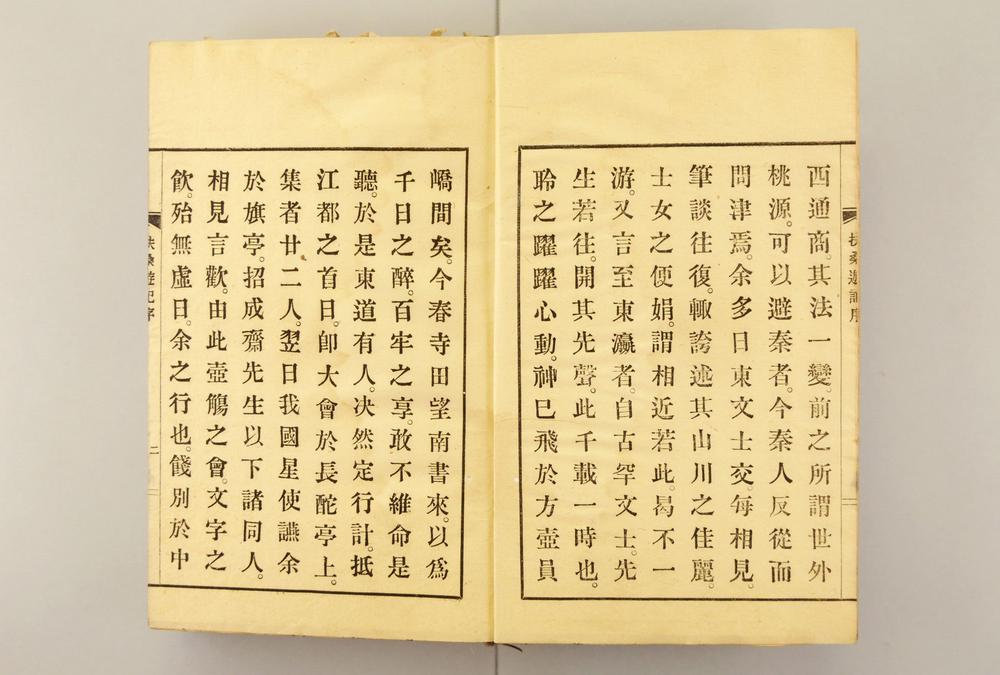 西通商。其法一變。前之所謂世外
桃源。可以避秦者。今秦人反從而
問津焉。余多日東文士交。每相見。
筆談往復。輙誇述其山川之佳麗。
士女之便娟。謂相近若此。曷不一
游。又言至東瀛者。自古罕文士。先
生若往。開其先聲。此千載一時也。
聆之躍躍心動。神已飛於方壺員
嶠間矣。今春寺田望南書來。以爲
千日之醉。百牢之享。敢不維命是
聽。於是東道有人。決然定行計。抵
江都之首日。卽大會於長酡亭上。
集者廿二人。翌日我國星使讌余
於旗亭。招成齋先生以下諸同人。
相見言歡。由此壺觴之會。文字之
飮。殆無虛日。余之行也。餞別於中
扶桑遊記序
二